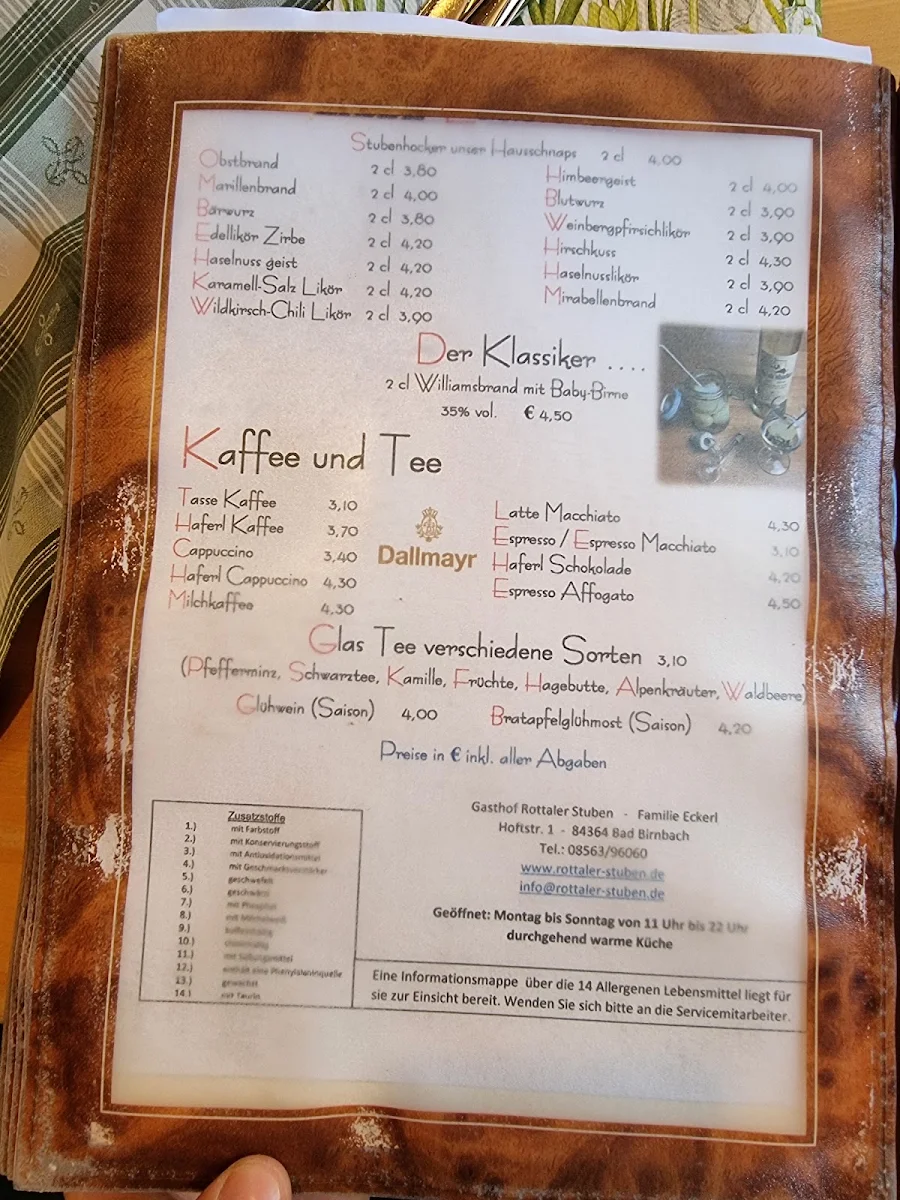 Stubenhocker unser Hausschnaps 2 cl 4,00
Obstbrand 2 cl 3,80
Marillenbrand 2 cl 4,00
Bärwurz 2 cl 3,80
Edellikör Zirbe 2 cl 4,20
Haselnuss geist 2 cl 4,20
Karamell-Salz Likör 2 cl 4,20
Wildkirsch-Chili Likör 2 cl 3,90
Himbeergeist 2 cl 4,00
Blutwurz 2 cl 3,90
Weinbergpfirsichlikör 2 cl 3,90
Hirschkuss 2 cl 4,30
Haselnusslikör 2 cl 3,90
Mirabellenbrand 2 cl 4,20
Der Klassiker ....
2 cl Williamsbrand mit Baby-Birne
35% vol. € 4,50
Kaffee und Tee
Tasse Kaffee 3,10
Haferl Kaffee 3,70
Cappuccino 3,40
Haferl Cappuccino 4,30
Milchkaffee 4,30
Dallmayr
Latte Macchiato 4,30
Espresso / Espresso Macchiato 3,10
Haferl Schokolade 4,20
Espresso Affogato 4,50
Glas Tee verschiedene Sorten 3,10
(Pfefferminz, Schwarztee, Kamille, Früchte, Hagebutte, Alpenkräuter, Waldbeere)
Glühwein (Saison) 4,00 Bratapfelglühmost (Saison) 4,20
Preise in € inkl. aller Abgaben
Zusatzstoffe
1.) mit Farbstoff
2.) mit Konservierungsstoff
3.) mit Antioxidationsmittel
4.) mit Geschmacksverstärker
5.) geschwefelt
6.) geschwärzt
7.) mit Phosphat
8.)
9.)
10.)
11.) mit Süßungsmittel
12.) enthält eine Phenylalaninquelle
13.) gewachst
14.) mit Taurin
Gasthof Rottaler Stuben - Familie Eckerl
Hofstr. 1 - 84364 Bad Birnbach
Tel.: 08563/96060
www.rottaler-stuben.de
info@rottaler-stuben.de
Geöffnet: Montag bis Sonntag von 11 Uhr bis 22 Uhr
durchgehend warme Küche
Eine Informationsmappe über die 14 Allergenen Lebensmittel liegt für
sie zur Einsicht bereit. Wenden Sie sich bitte an die Servicemitarbeiter.